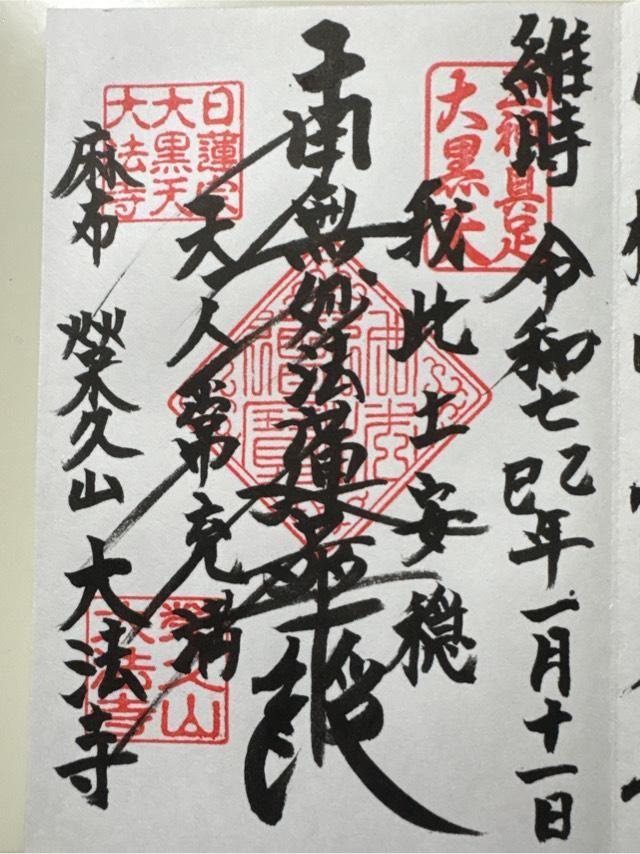 維時 令和七乙巳年一月十一日
三神具足
大黒天
我此土安穏
南無妙法蓮華経
天人常充満
日蓮宗
大黒天
大法寺
麻布 榮久山 大法寺
榮久山
大法寺